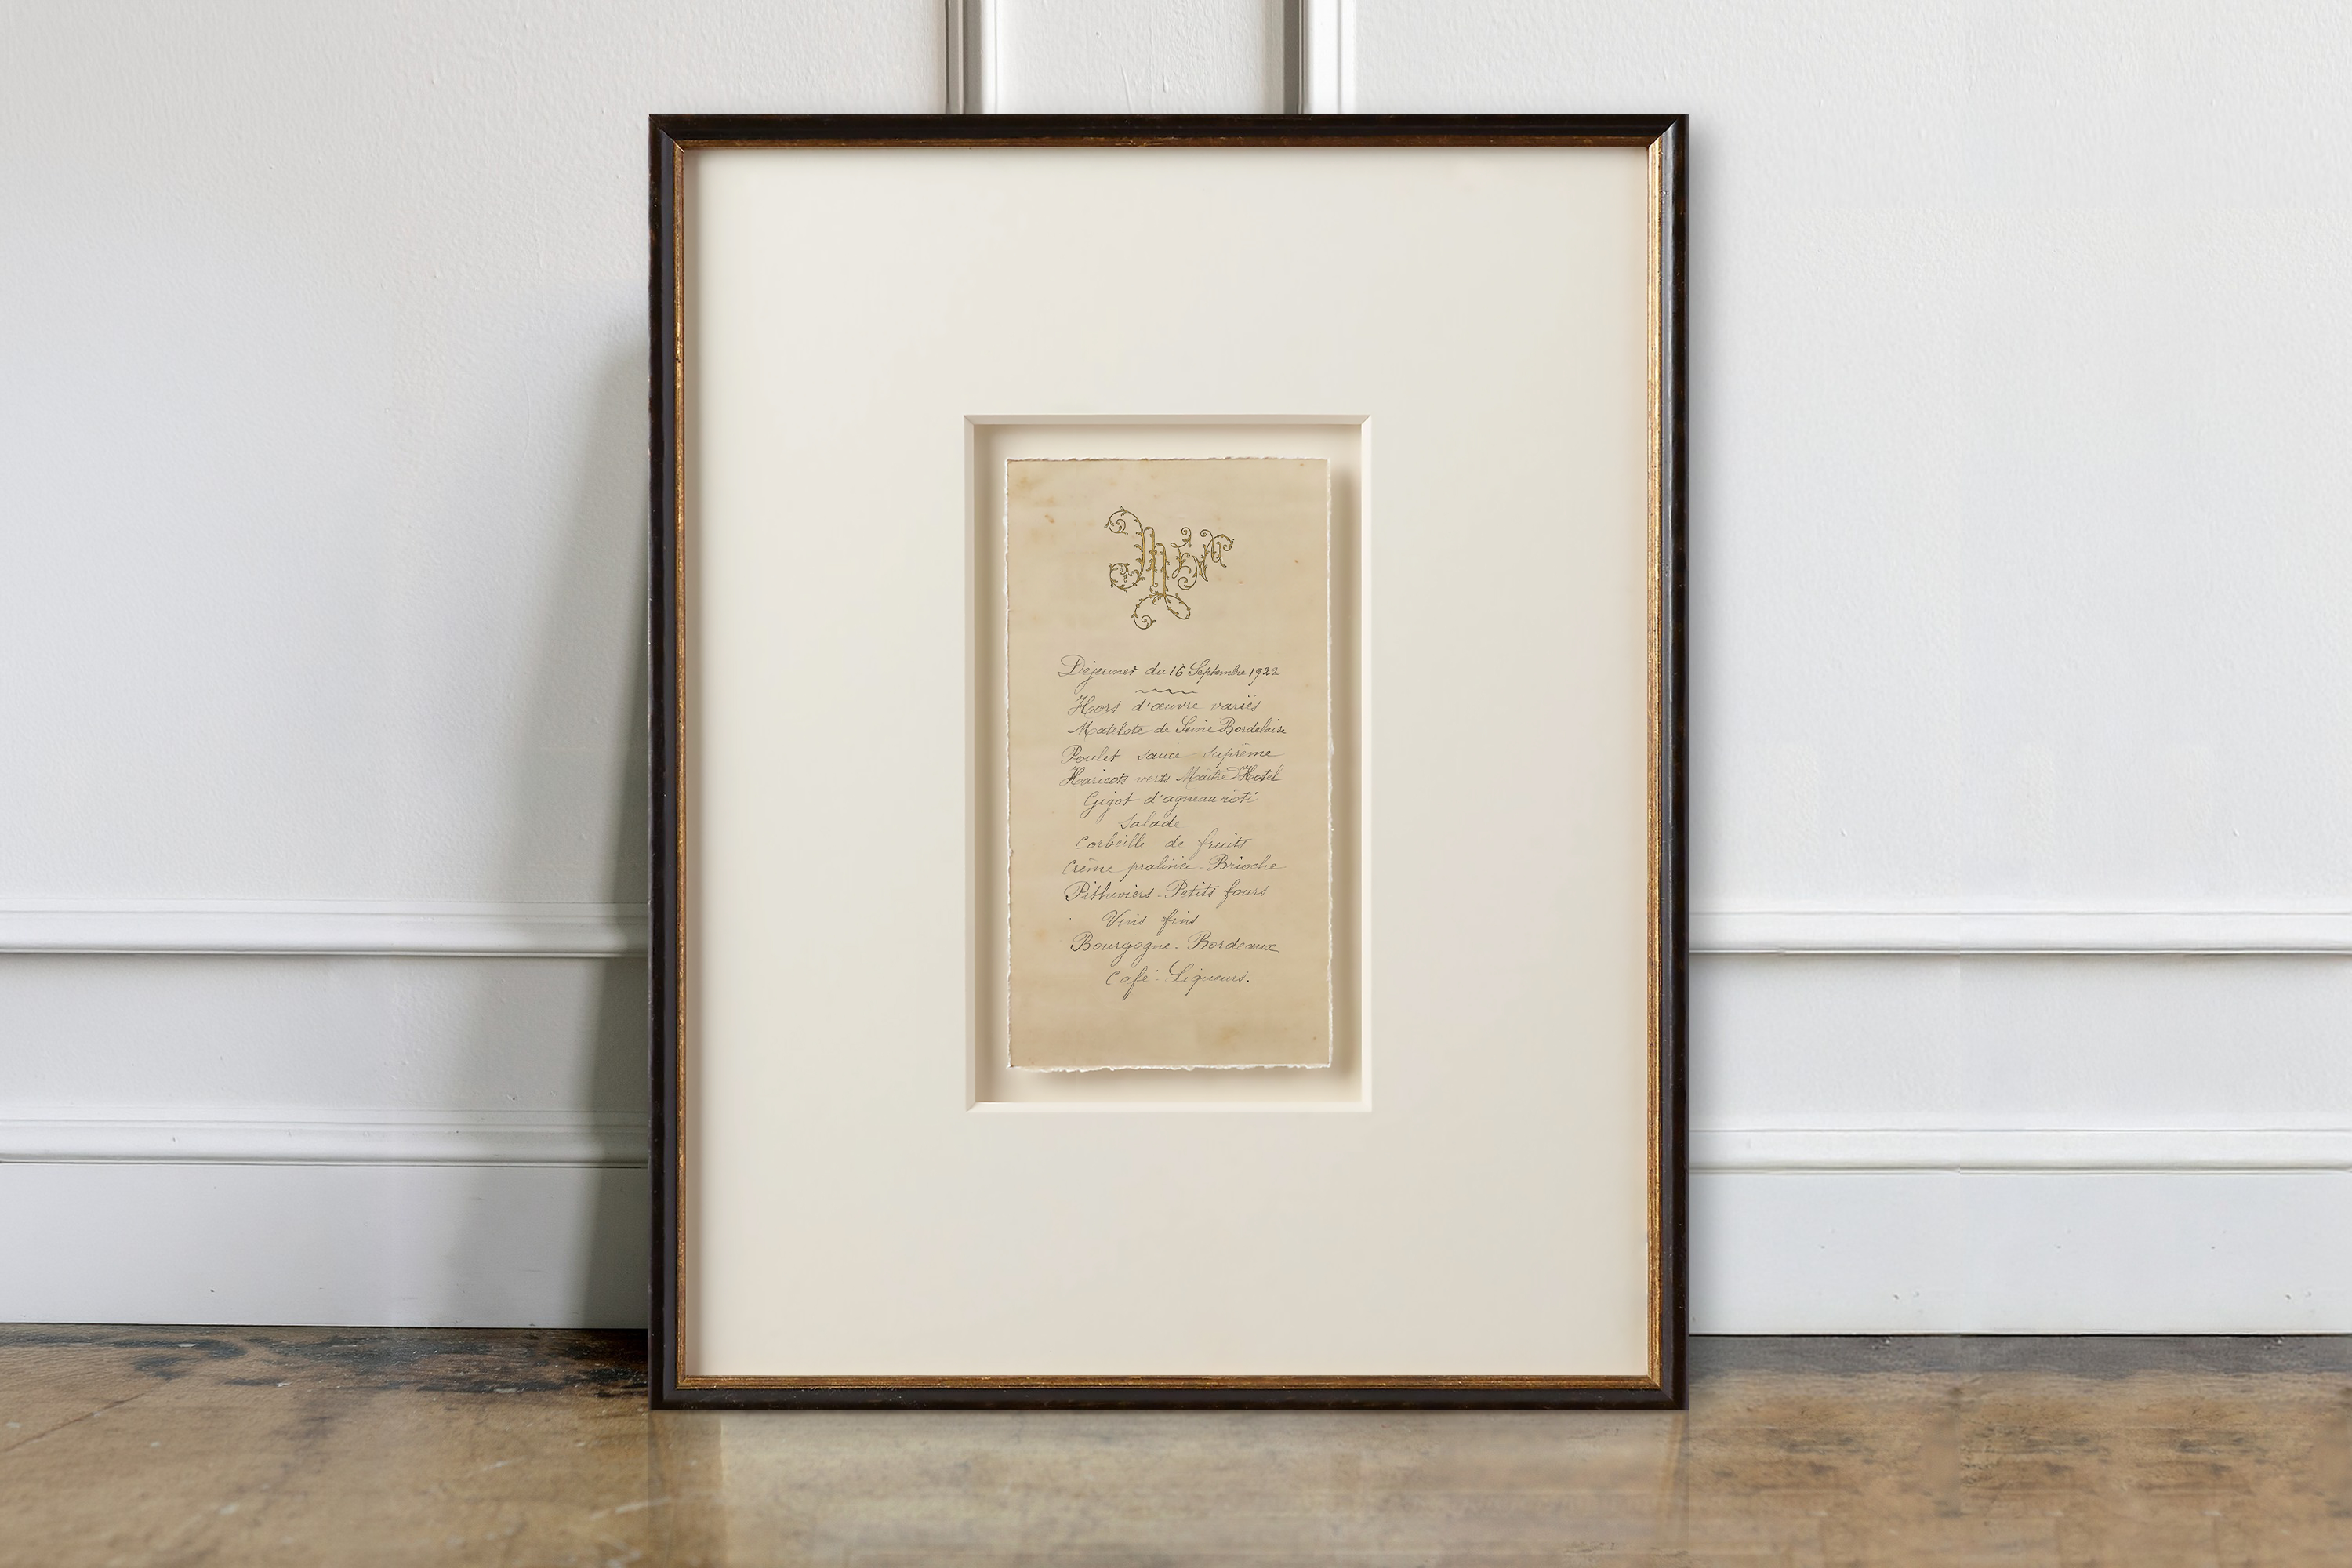 Menu
Déjeuner du 16 Septembre 1922
Hors d'œuvre variés
Matelote de Seine Bordelaise
Poulet sauce Suprême
Haricots verts Maître d'Hotel
Gigot d'agneau rôti
Salade
Corbeille de fruits
Crème pralinée - Brioche
Pithiviers - Petits fours
Vins fins
Bourgogne - Bordeaux
Café - Liqueurs.